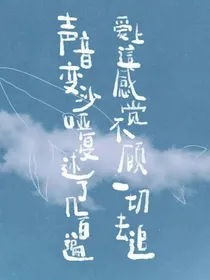 愛上這感觉不顾一切去追
声音变沙哑复述了几百遍